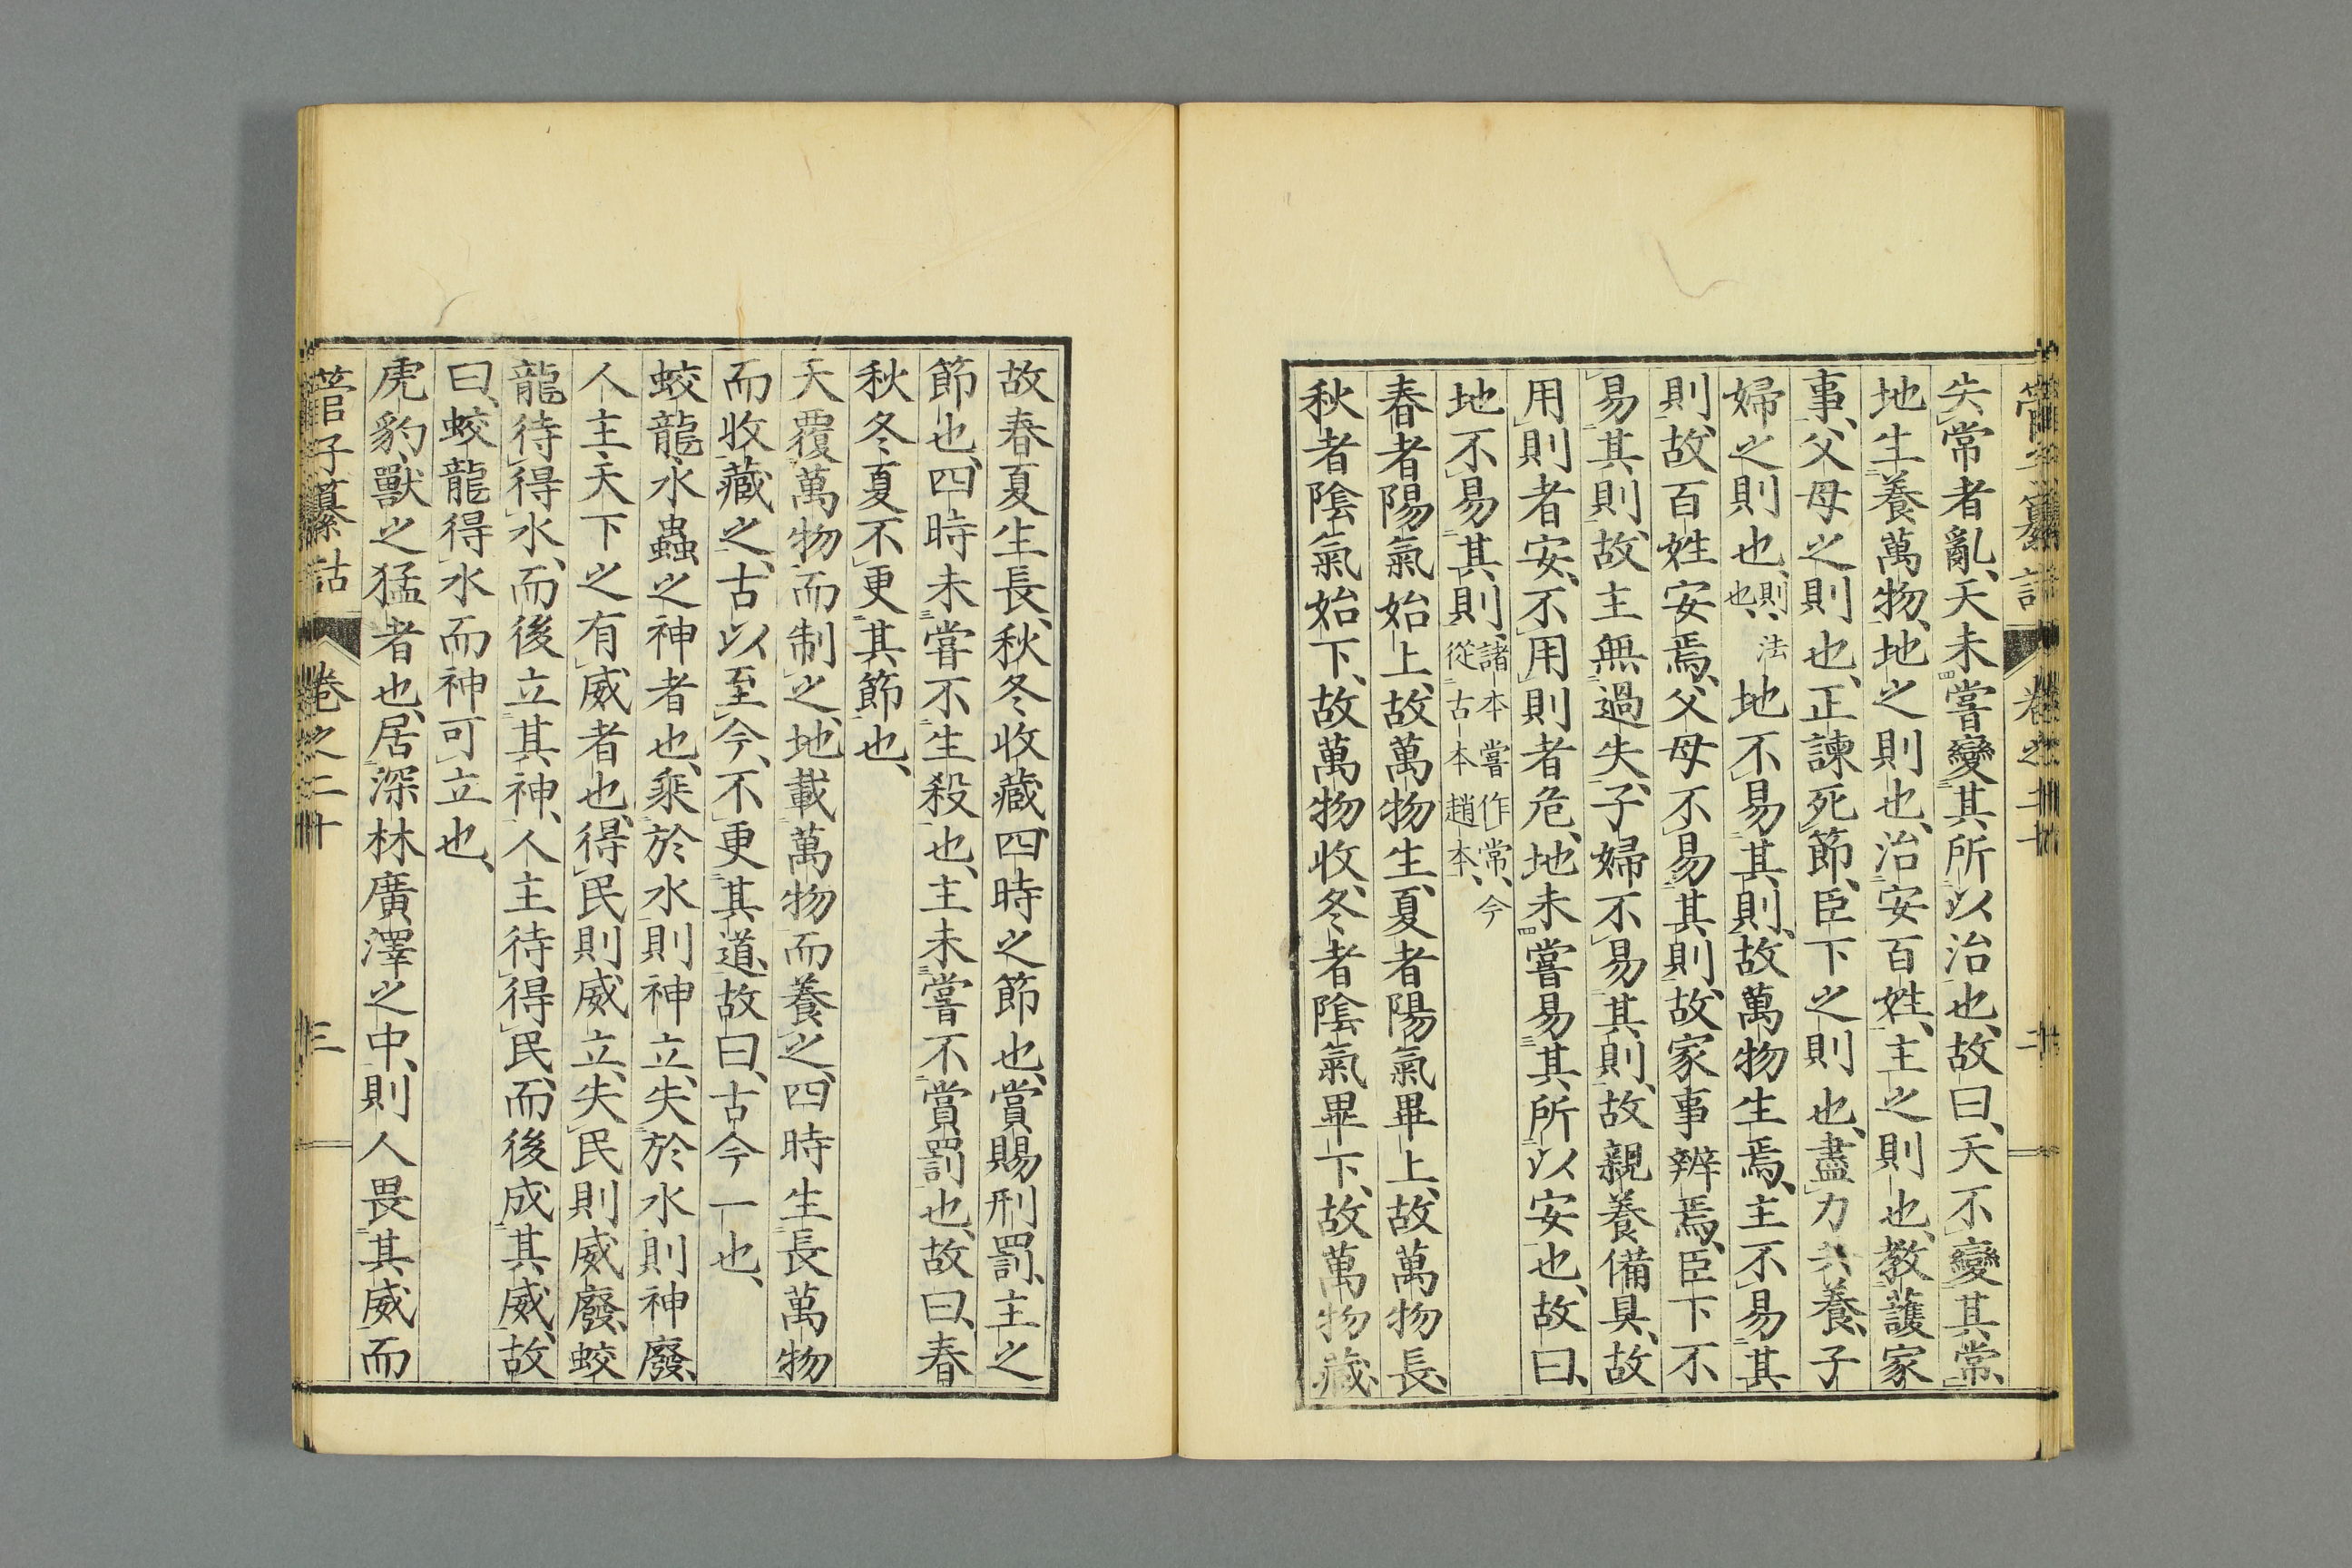 失常者亂、天未嘗變其所以治也、故曰、天不變其常、
地生養萬物、地之則也、治安百姓、主之則也、教護家
事、父母之則也、正諫死節、臣下之則也、盡力共養、子
婦之則也、則、法也、地不易其則、故萬物生焉、主不易其
則、故百姓安焉、父母不易其則、故家事辨焉、臣下不
易其則、故主無過失、子婦不易其則、故親養備具、故
用則者安、不用則者危、地未嘗易其所以安也、故曰、
地不易其則、諸本嘗作常、今從古本趙本、
春者陽氣始上、故萬物生、夏者陽氣畢上、故萬物長、
秋者陰氣始下、故萬物收、冬者陰氣畢下、故萬物藏、
故春夏生長、秋冬收藏、四時之節也、賞賜刑罰、主之
節也、四時未嘗不生殺也、主未嘗不賞罰也、故曰、春
秋冬夏不更其節也、
天覆萬物而制之、地載萬物而養之、四時生長萬物
而收藏之、古以至今、不更其道、故曰、古今一也、
蛟龍、水蟲之神者也、乘於水則神立、失於水則神廢、
人主、天下之有威者也、得民則威立、失民則威廢、蛟
龍待得水、而後立其神、人主待得民、而後成其威、故
曰、蛟龍得水而神可立也、
虎豹、獸之猛者也、居深林廣澤之中、則人畏其威而
管子纂詁 卷之二十 三